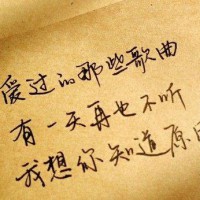 爱过的那些歌曲
有一天再也不听
我想你知道原